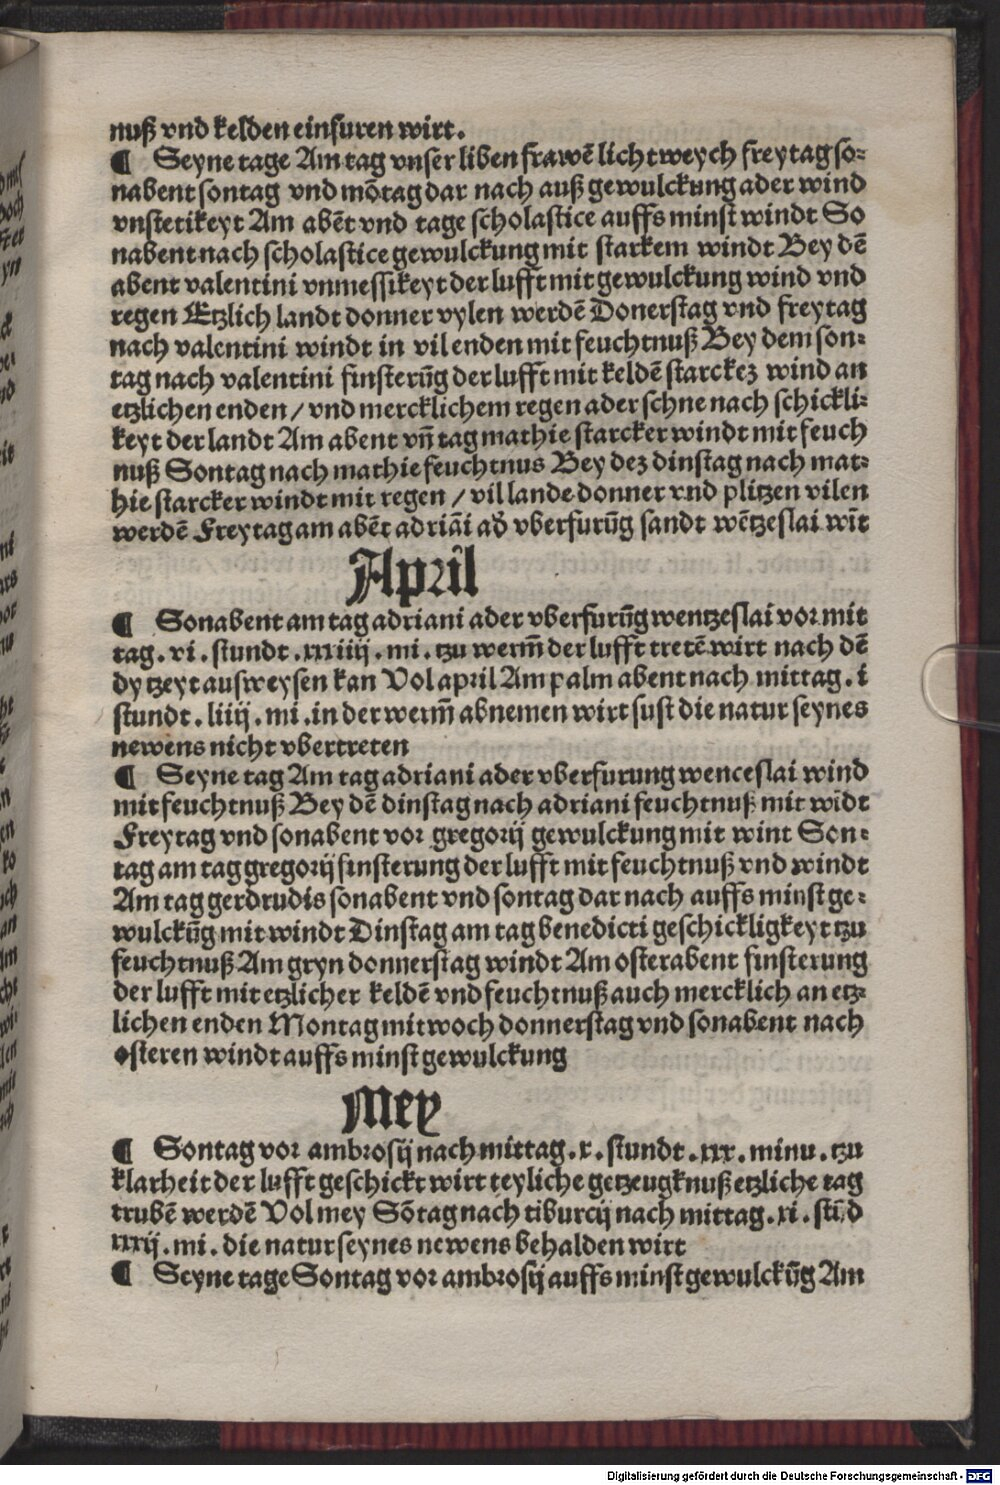 nuß vnd kelden einfuren wirt.
¶ Seyne tage Am tag vnser liben frawē lichtweych freytag so⸗
nabent sontag vnd mōtag dar nach auß gewulckung ader wind
vnstetikeyt Am abēt vnd tage scholastice auffs minst windt So
nabent nach scholastice gewulckung mit starkem windt Bey dē
abent valentini vnmessikeyt der lufft mit gewulckung wind vnd
regen Etzlich landt donner vylen werdē Donerstag vnd freytag
nach valentini windt in vil enden mit feuchtnuß Bey dem son⸗
tag nach valentini finsterūg der lufft mit keldē starckez wind an
etzlichen enden / vnd mercklichem regen ader schne nach schickli⸗
keyt der landt Am abent vn̄ tag mathie starcker windt mit feuch
nuß Sontag nach mathie feuchtnus Bey dez dinstag nach mat⸗
hie starcker windt mit regen / vil lande donner vnd plitzen vilen
werdē Freytag am abēt adriāi ad̕ vberfurūg sandt wētzeslai wīt
April
¶ Sonabent am tag adriani ader vberfurūg wentzeslai vor mit
tag. vi. stundt .xxxiiij. mi. tzu werm̄ der lufft tretē wirt nach dē
dy tzeyt ausweysen kan Vol april Am palm abent nach mittag. i
stundt. liiij. mi. in der werm̄ abnemen wirt sust die natur seynes
newens nicht vbertreten
¶ Seyne tag Am tag adriani ader vberfurung wenceslai wind
mit feuchtnuß Bey dē dinstag nach adriani feuchtnuß mit wīdt
Freytag vnd sonabent vor gregorij gewulckung mit wint Son⸗
tag am tag gregorij finsterung der lufft mit feuchtnuß vnd windt
Am tag gerdrudis sonabent vnd sontag dar nach auffs minst ge⸗
wulckūg mit windt Dinstag am tag benedicti geschickligkeyt tzu
feuchtnuß Am gryn donnerstag windt Am osterabent finsterung
der lufft mit etzlicher keldē vnd feuchtnuß auch mercklich an etz⸗
lichen enden Montag mitwoch donnerstag vnd sonabent nach
osteren windt auffs minst gewulckung
Mey
¶ Sontag vor ambrosij nach mittag. x. stundt .xxx. minu. tzu
klarheit der lufft geschickt wirt teyliche getzeugknuß etzliche tag
trubē werdē Vol mey Sōtag nach tiburcij nach mittag. xi. stūd
xxxij. mi. die natur seynes newens behalden wirt
¶ Seyne tage Sontag vor ambrosij auffs minst gewulckūg Am
Digitalisierung gefördert durch die Deutsche Forschungsgemeinschaft - DFG